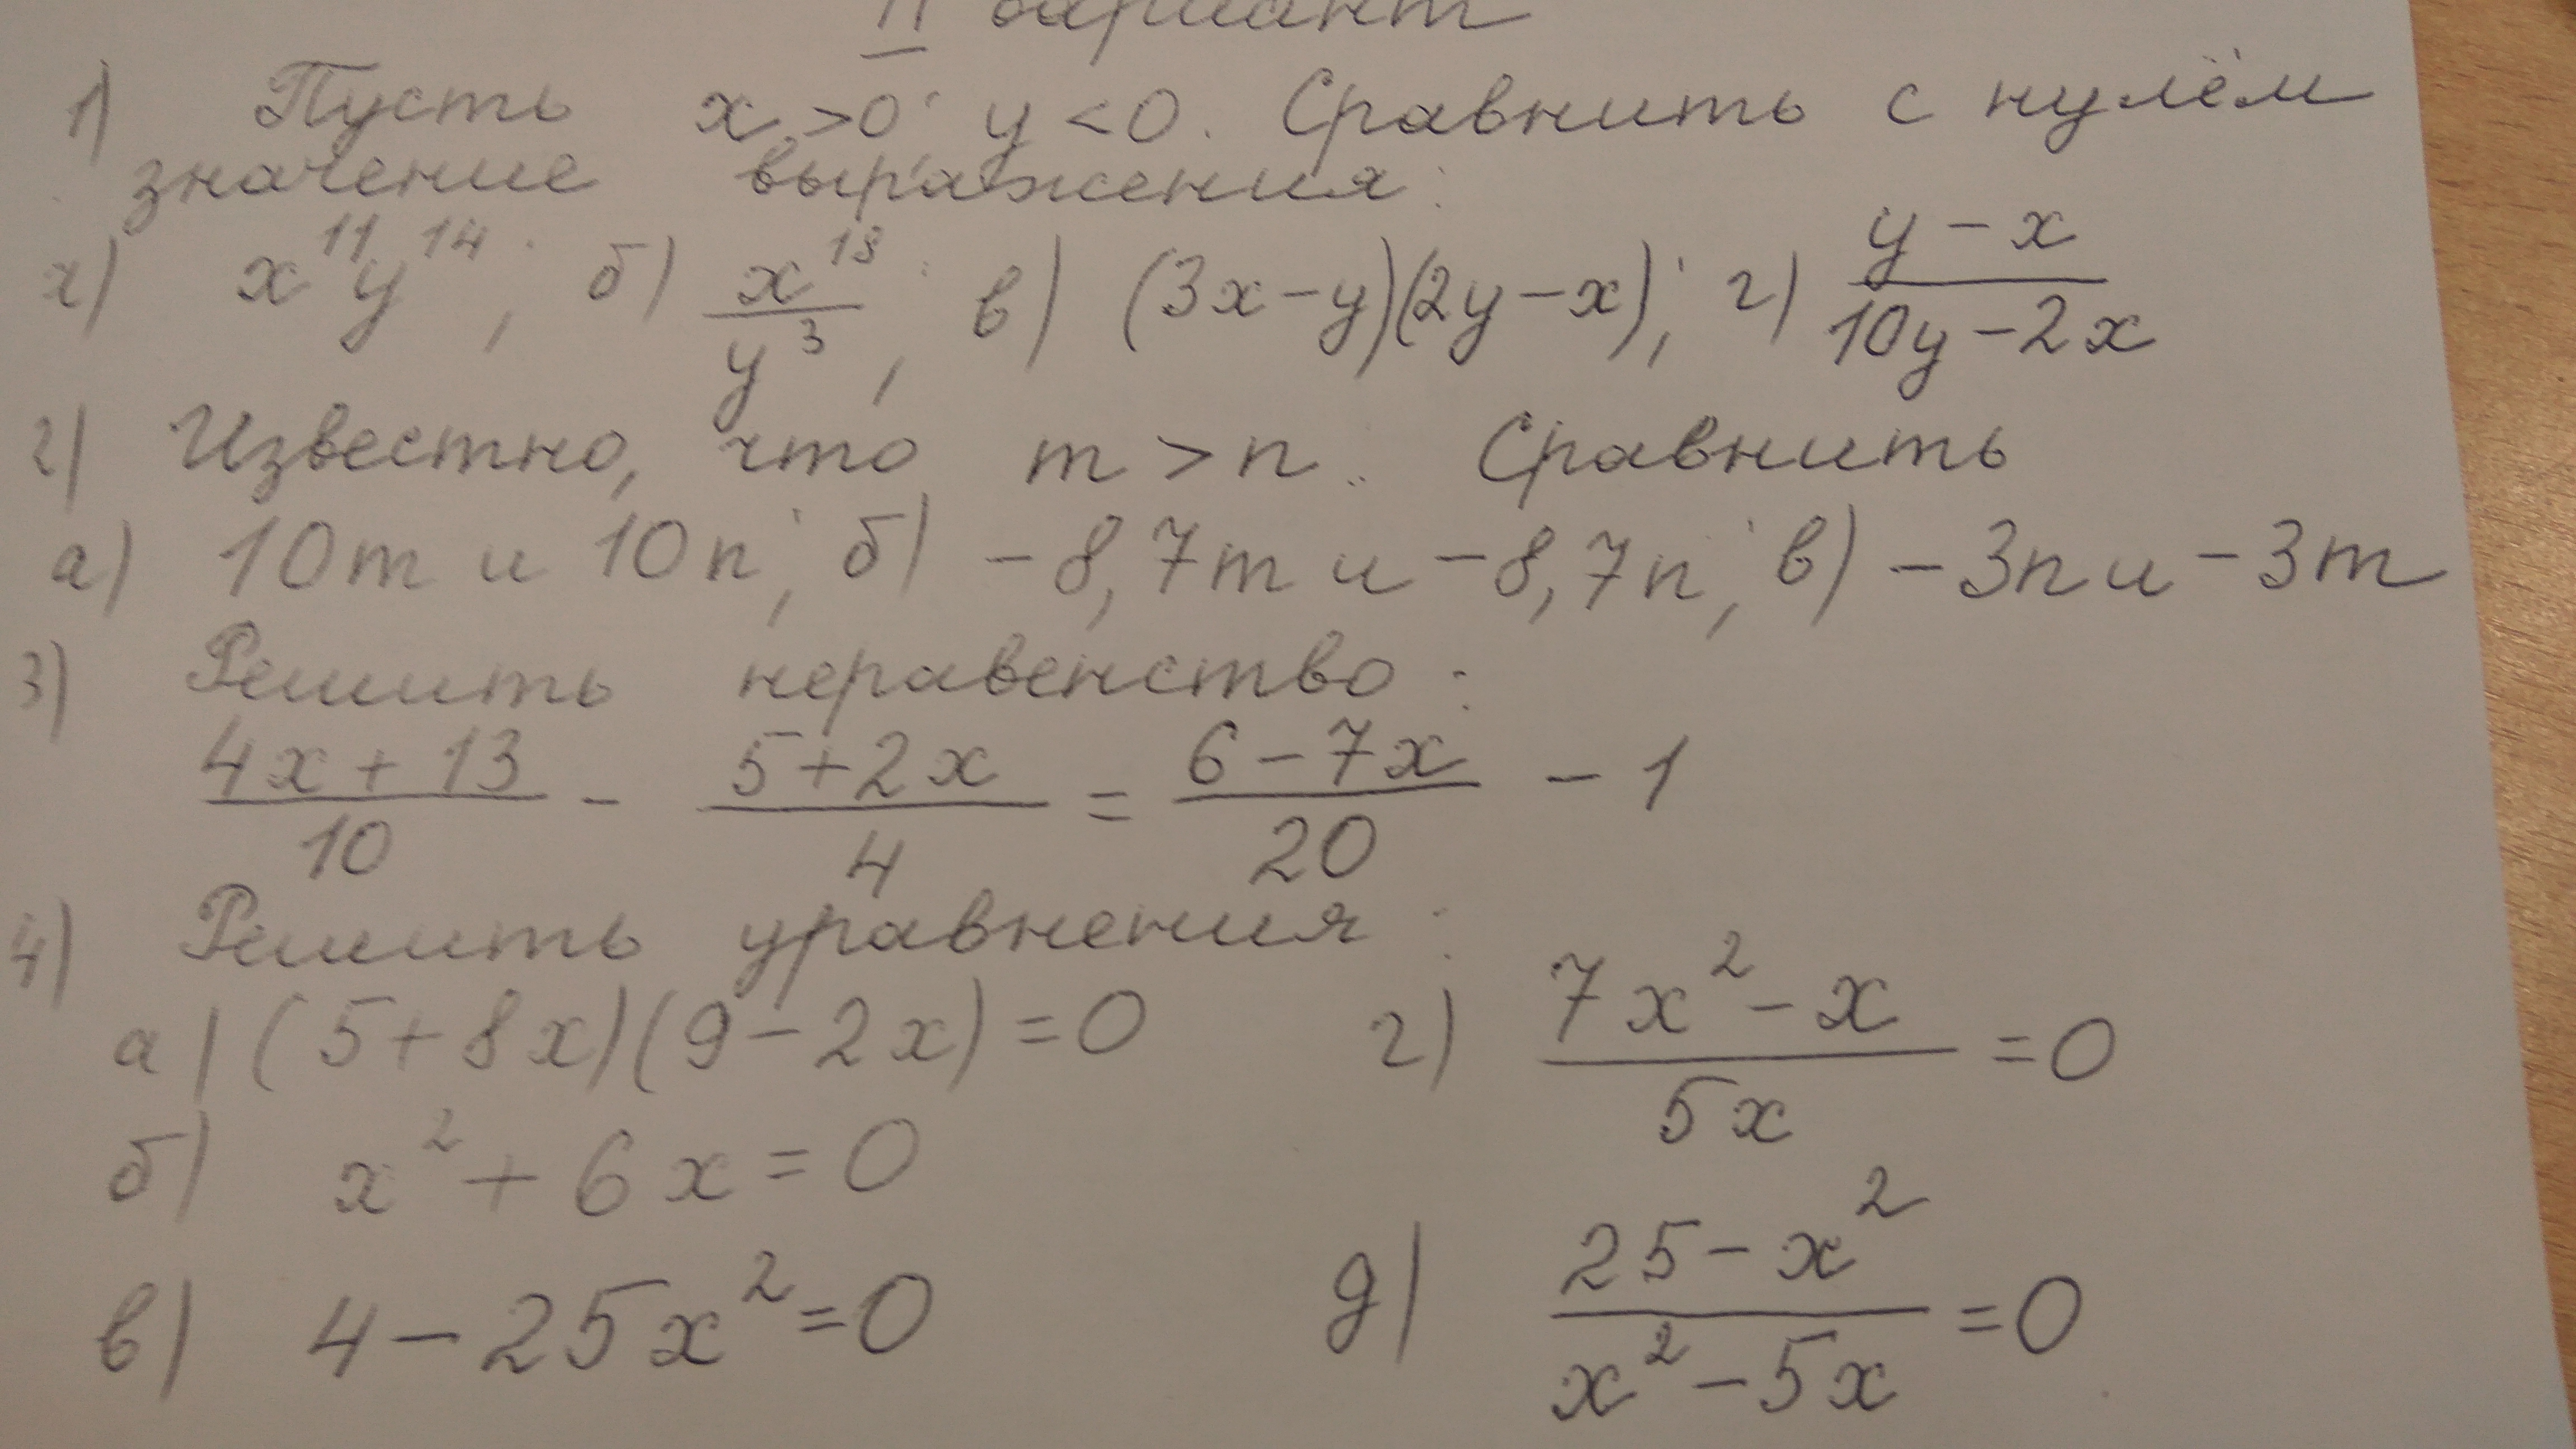 II вариант
1) Пусть x > 0; y < 0. Сравнить с нулём
значение выражения:
а) x¹¹y¹⁴; б) x¹³/y³; в) (3x-y)(2y-x); г) (y-x)/(10y-2x)
2) Известно, что m > n. Сравнить
а) 10m и 10n; б) -8,7m и -8,7n; в) -3n и -3m
3) Решить неравенство:
(4x+13)/10 - (5+2x)/4 = (6-7x)/20 - 1
4) Решить уравнения:
а) (5+8x)(9-2x)=0
б) x²+6x=0
в) 4-25x²=0
г) (7x²-x)/(5x) =0
д) (25-x²)/(x²-5x) =0